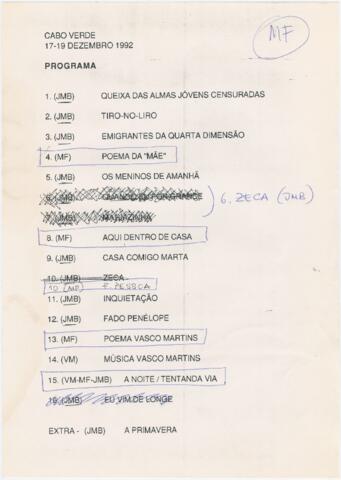 CABO VERDE
17-19 DEZEMBRO 1992
MF
PROGRAMA
1. (JMB) QUEIXA DAS ALMAS JÓVENS CENSURADAS
2. (JMB) TIRO-NO-LIRO
3. (JMB) EMIGRANTES DA QUARTA DIMENSÃO
4. (MF) POEMA DA "MÃE"
5. (JMB) OS MENINOS DE AMANHÃ
6. ZECA (JMB)
8. (MF) AQUI DENTRO DE CASA
9. (JMB) CASA COMIGO MARTA
10. (JMB) ZECA
10. (MF) F. PESSOA
11. (JMB) INQUIETAÇÃO
12. (JMB) FADO PENÉLOPE
13. (MF) POEMA VASCO MARTINS
14. (VM) MÚSICA VASCO MARTINS
15. (VM-MF-JMB) A NOITE / TENTANDA VIA
16. (JMB) EU VIM DE LONGE
EXTRA - (JMB) A PRIMAVERA